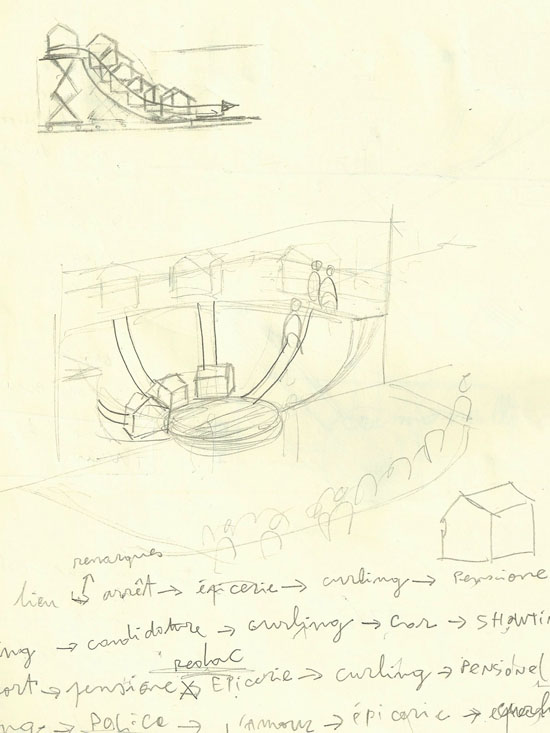 remarques
lieu → arrêt → épicerie → curling → Pensione
ng → candidature → curling → Car →
redac
ort → pensione X EPicerie → curling → PENSIONE
ng → Police → l'amour → épicerie →